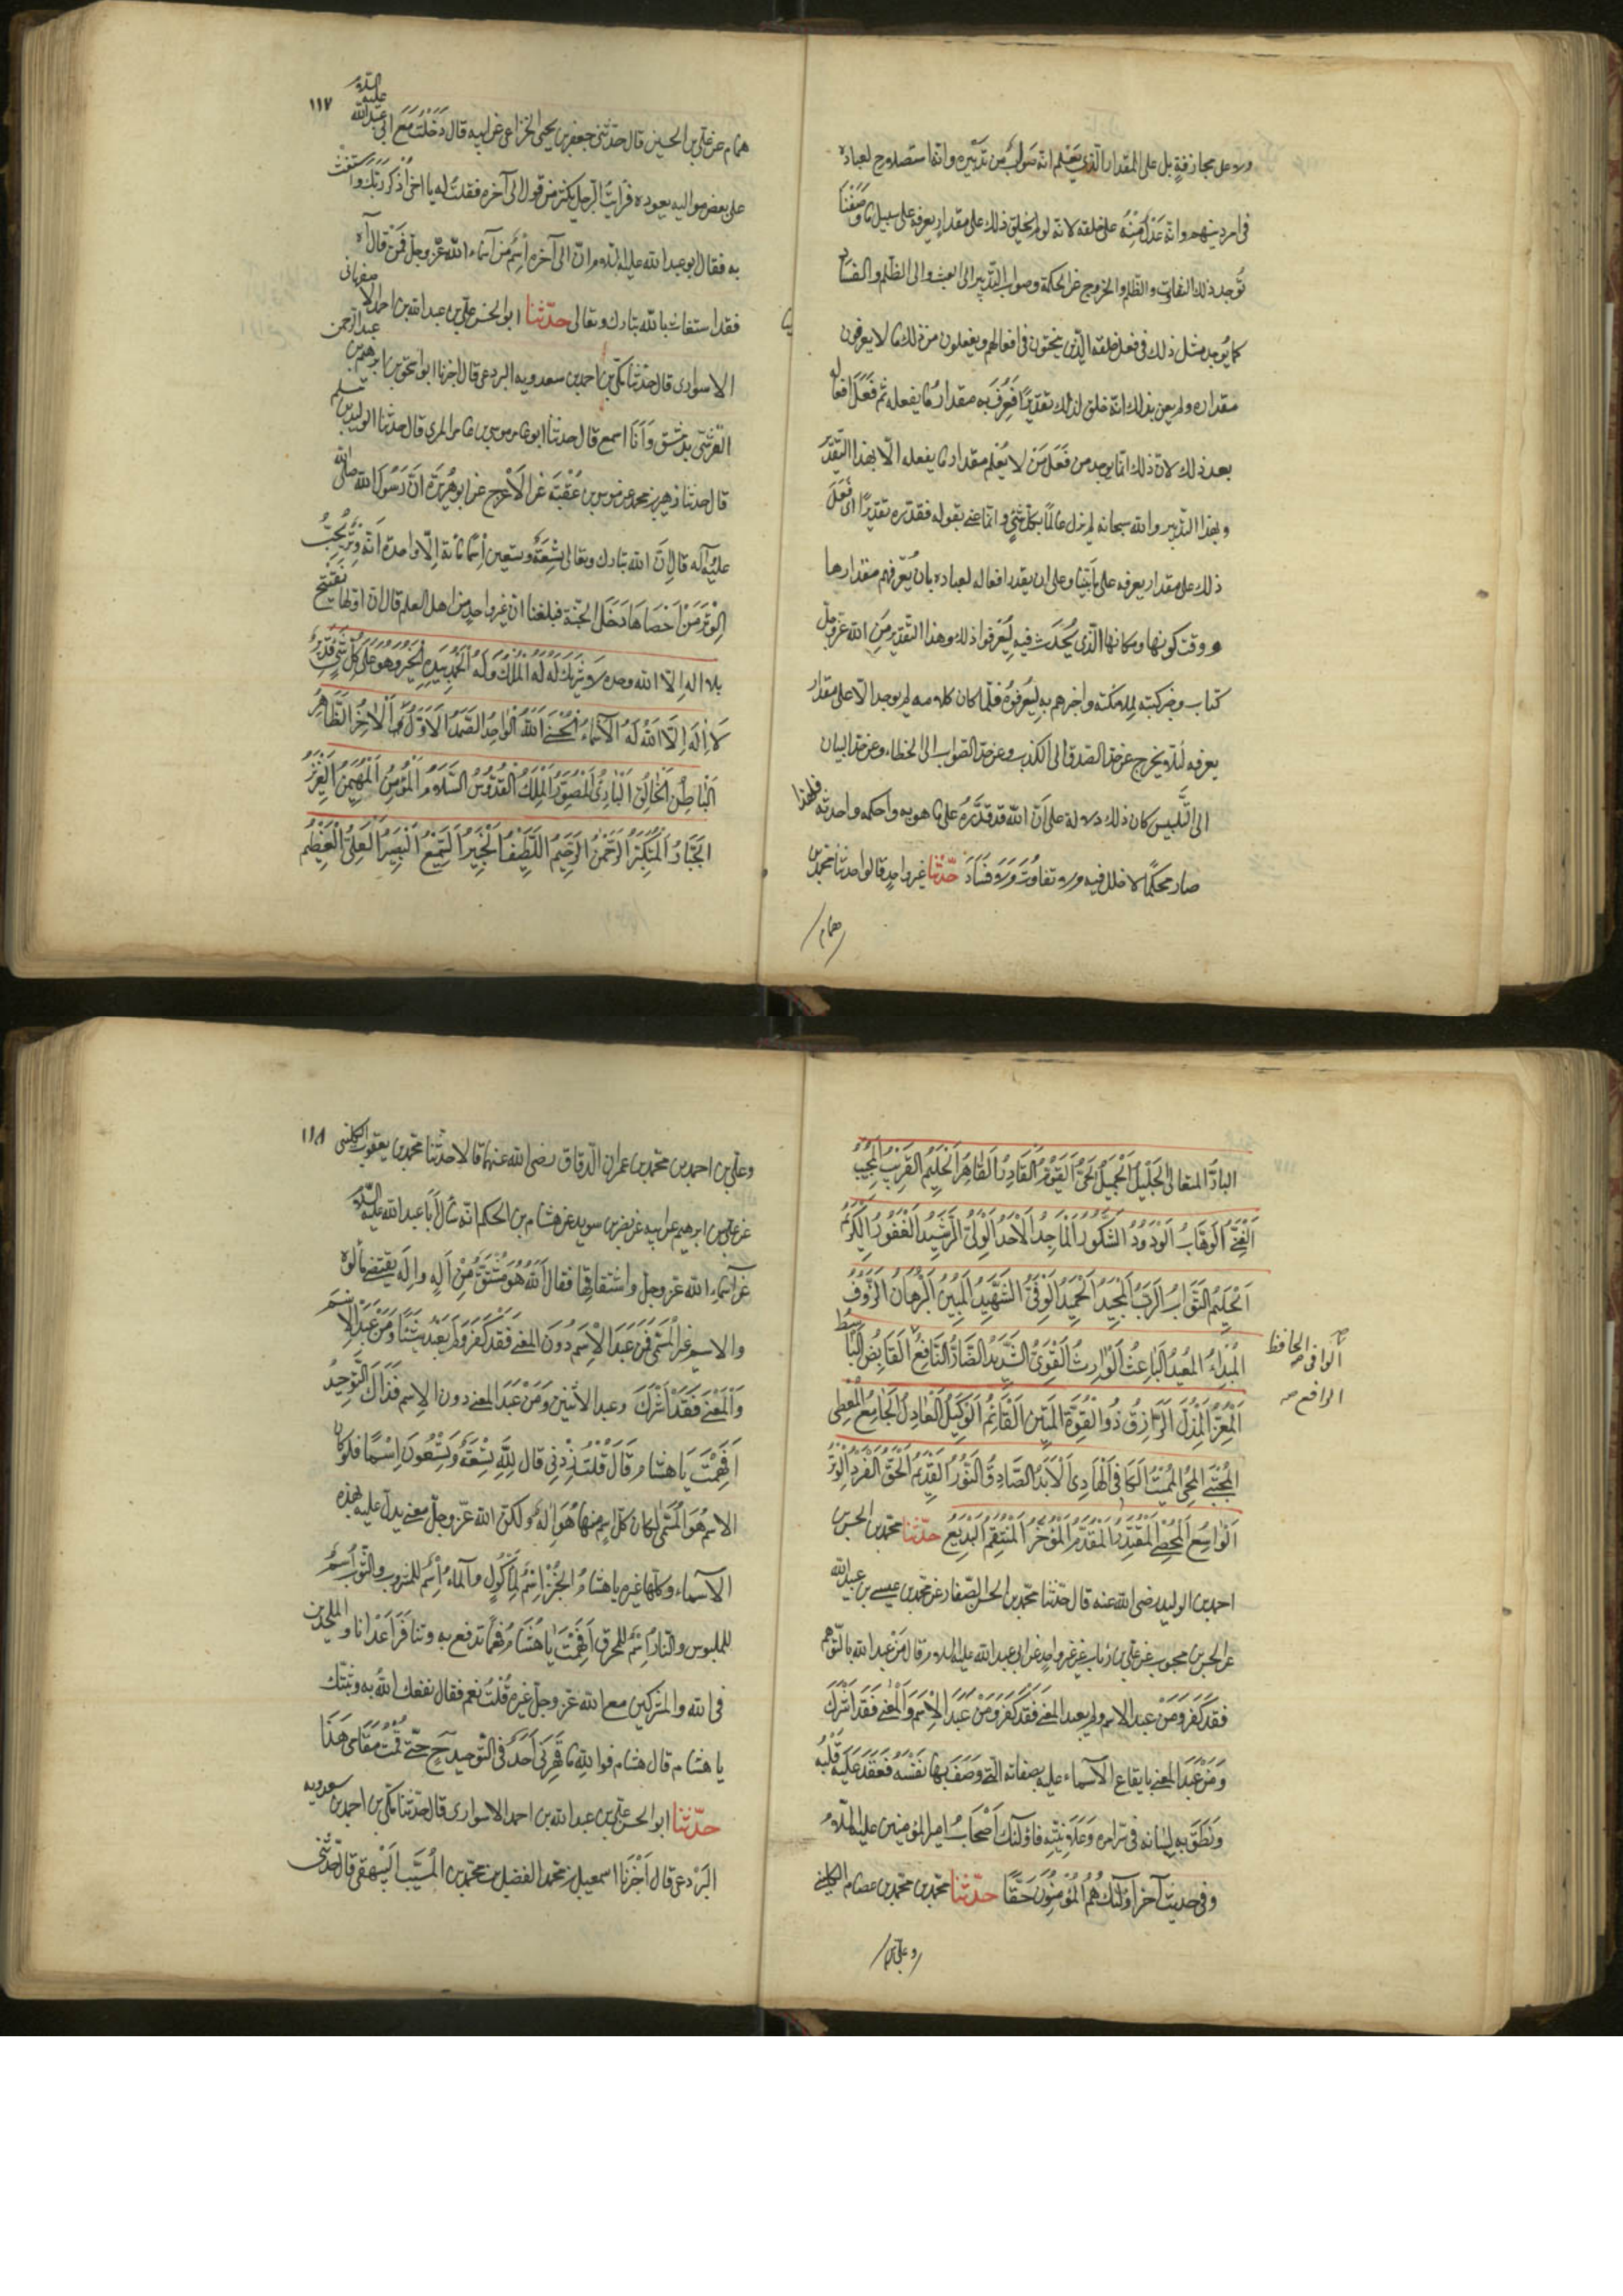 ولا على مجازفة بل على المقدار الذي يعلم انه صواب من تدبيره وانه استصلاح لعباده
في امر دينهم وانه عدل منه على خلقه لانه لو لم يخلق ذلك على مقدار يعرفه على سبيل ما وصفنا
لوجد في ذلك التفاوت والظلم والخروج عن الحكمة وصواب التدبير الى العبث والى الظلم والفساد
كما يوجد مثل ذلك في فعل خلقه الذين ينحتون في افعالهم ويفعلون من ذلك ما لا يعرفون
مقداره ولم يعن بذلك انه خلق لذلك تقديرًا فعرف به مقدار ما يفعله ثم فعل افعاله
بعد ذلك لان ذلك انما يوجد من فعل من لا يعلم مقدار ما يفعله الا بهذا التقدير
وبهذا التدبير والله سبحانه لم يزل عالمًا بكل شئ وانما عنى بقوله فقدره تقديرًا اى فعل
ذلك على مقدار يعرفه على ما بينا وعلى ان يقدر افعاله لعباده بان يعرفهم مقدارها
ووقت كونها ومكانها الذي يحدث فيه ليعرفوا ذلك وهذا التقدير من الله عز وجل
كتاب وخبر كتبه لملائكته واخبرهم به ليعرفوه فلما كان كلامه لم يوجد الا على مقدار
يعرفه لئلا يخرج عن حد الصدق الى الكذب وعن حد الصواب الى الخطاء وعن حد البيان
الى التلبيس كان ذلك دلالة على ان الله قد قدره على ما هو به واحكمه واحدثه فلهذا
صار محكمًا لا خلل فيه ولا تفاوت ولا فساد حدثنا غير واحد قالوا حدثنا محمد بن
همام
١١٧
همام عن علي بن الحسين قال حدثني جعفر بن يحيى الخزاعي عن ابيه قال دخلت مع ابي عبدالله عليه السلام
على بعض مواليه يعوده فرايت الرجل يكثر من قول الى آخره فقلت له يا اخي اذكر ربك واستغث
به فقال ابو عبد الله عليه السلام ان الى آخره اسم من اسماء الله عز وجل فمن قال آه
فقد استغاث بالله تبارك وتعالى حدثنا ابو الحسن علي بن عبد الله بن احمد الاصفهاني
الاسواري قال حدثنا مكي بن احمد بن سعدويه البردعي قال اخبرنا ابو اسحق ابراهيم بن عبد الرحمن
القرشي بدمشق وانا اسمع قال حدثنا ابو عامر موسى بن عامر المري قال حدثنا الوليد بن مسلم
قال حدثنا زهير بن محمد عن موسى بن عقبة عن الاعرج عن ابو هريرة ان رسول الله صلى الله
عليه وآله قال ان الله تبارك وتعالى تسعة وتسعين اسما مائة الا واحدة انه وتر يحب
الوتر من احصاها دخل الجنة فبلغنا ان غير واحد من اهل العلم قال ان اولها يفتتح
بلا اله الا الله وحده لا شريك له له الملك وله الحمد بيده الخير وهو على كل شئ قدير
لا اله الا الله له الاسماء الحسنى الله الواحد الصمد الاول الآخر الظاهر
الباطن الخالق البارئ المصور الملك القدوس السلام المؤمن المهيمن العزيز
الجبار المتكبر الرحمن الرحيم اللطيف الخبير السميع البصير العلي العظيم
البار المتعالى الجليل الجميل الحي القيوم القادر القاهر الحكيم القريب المجيب
الغني الوهاب الودود الشكور الماجد الاحد الولي الرشيد الغفور الكريم
الحليم التواب الرب المجيد الحميد الوفي الشهيد المبين البرهان الرؤوف
المبدئ المعيد الباعث الوارث القوي الشديد الضار النافع القابض الباسط
الوافى الحافظ
الرافع
المعز المذل الرازق ذو القوة المتين القائم الوكيل العادل الجامع المعطى
المجتبى المحي المميت الكافي الهادى الابد الصادق النور القديم الحق الفرد الوتر
الواسع المحصى المقتدر المقدم المؤخر المنتقم البديع حدثنا محمد بن الحسن بن
احمد بن الوليد رضى الله عنه قال حدثنا محمد بن الحسن الصفار عن محمد بن عيسى بن عبيد الله
عن الحسن بن محبوب عن علي بن رئاب عن غير واحد عن ابي عبد الله عليه السلام قال من عبد الله بالتوهم
فقد كفر ومن عبد الاسم ولم يعبد المعنى فقد كفر ومن عبد الاسم والمعنى فقد اشرك
ومن عبد المعنى بايقاع الاسماء عليه بصفاته التي وصف بها نفسه فعقد عليه قلبه
ونطق به لسانه في سرائره وعلانيته فاولئك اصحاب امير المؤمنين عليه السلام
وفي حديث آخر اولئك هم المؤمنون حقا حدثنا محمد بن محمد بن عصام الكليني
وعلي بن
١١٨
وعلي بن احمد بن محمد بن عمران الدقاق رضى الله عنهما قالا حدثنا محمد بن يعقوب الكليني
عن علي بن ابرهيم عن ابيه عن نضر بن سويد عن هشام بن الحكم انه سال ابا عبد الله عليه السلام
عن اسماء الله عز وجل واشتقاقها فقال الله هو مشتق من اله واله يقتضي مألوه
والاسم غير المسمى فمن عبد الاسم دون المعنى فقد كفر ولم يعبد شيئا ومن عبد الاسم
والمعنى فقد اشرك وعبد الاثنين ومن عبد المعنى دون الاسم فذاك التوحيد
افهمت يا هشام قال قلت زدني قال لله تسعة وتسعون اسمًا فلو كان
الاسم هو المسمى لكان كل اسم منها هو اله ولكن الله عز وجل معنى يدل عليه بهذه
الاسماء وكلها غيره يا هشام الخبز اسم للمأكول والماء اسم للمشروب والثوب اسم
للملبوس والنار اسم للمحرق افهمت يا هشام فهما تدفع به وتنافر اعدائنا والملحدين
في الله والمشركين مع الله عز وجل غيره قلت نعم فقال نفعك الله به وثبتك
يا هشام قال هشام فوالله ما قهرني احد في التوحيد ح حتى قمت مقامي هذا
حدثنا ابو الحسن علي بن عبد الله بن احمد الاسواري قال حدثنا مكي بن احمد بن سعدويه
البردعي قال اخبرنا اسمعيل بن محمد الفضيل بن محمد بن المسيب البيهقي قال حدثني